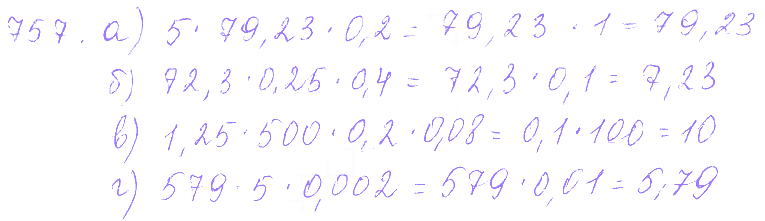 757. а) 5 · 79,23 · 0,2 = 79,23 · 1 = 79,23
б) 72,3 · 0,25 · 0,4 = 72,3 · 0,1 = 7,23
в) 1,25 · 500 · 0,2 · 0,08 = 0,1 · 100 = 10
г) 579 · 5 · 0,002 = 579 · 0,01 = 5,79